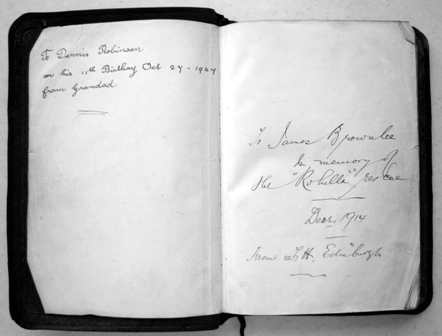 To Dennis Robinson
on his 11th Birthday Oct 27 - 1944
from Grandad
To James Brownlee
In memory of
the "Rohilla" rescue
Decr 1914
From Edinburgh